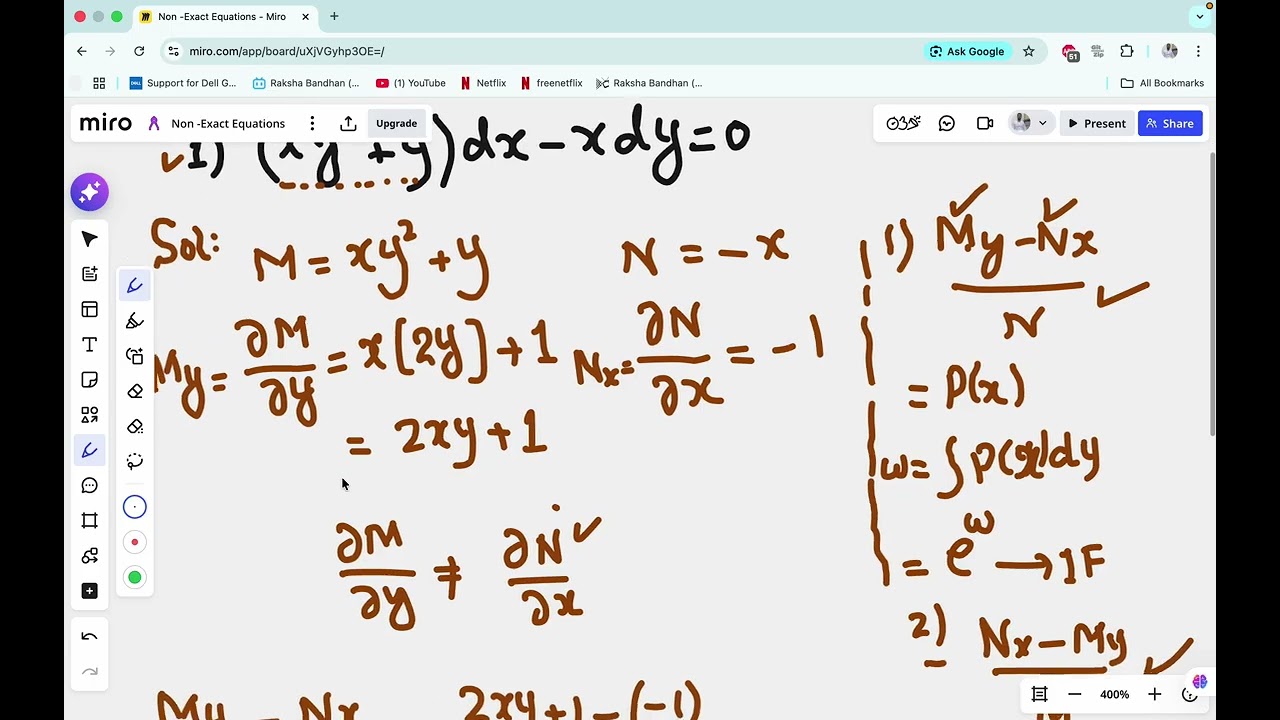 Non -Exact Equations - Miro
miro.com/app/board/uXjVGyhp3OE=/
Ask Google
51
Support for Dell G...
Raksha Bandhan (...
(1) YouTube
Netflix
freenetflix
Raksha Bandhan (...
All Bookmarks
miro
Non -Exact Equations
Upgrade
Present
Share
1) (xy² + y)dx - xdy = 0
Sol: M = xy² + y N = -x
My = ∂M/∂y = x[2y] + 1 Nx = ∂N/∂x = -1
= 2xy + 1
∂M/∂y ≠ ∂N/∂x
My - Nx 2xy + 1 - (-1)
1) My - Nx / N
= P(x)
ω = ∫P(x)dy
= e^ω → IF
2) Nx - My
400%